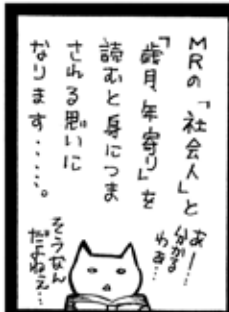 MRの「社会人」と
「歳月、年寄り」を
読むと身につま
される思いに
なります・・・・・。
あー…
分かる
わぁ…
そうなん
だよねぇ…